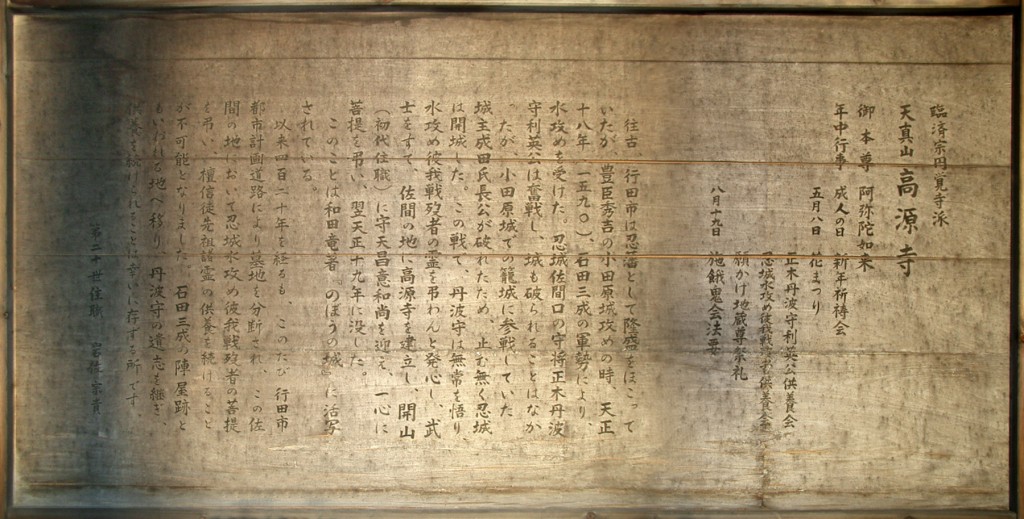 臨済宗円覚寺派
天真山 高源寺
御本尊 阿弥陀如来
年中行事 成人の日 新年祈祷会
五月八日 花まつり
正木丹波守利英公供養会
忍城水攻め彼我戦歿者供養会
願かけ地蔵尊祭礼
八月十九日 施餓鬼会法要
往古、行田市は忍藩として隆盛をほこって
いたが、豊臣秀吉の小田原城攻めの時、天正
十八年(一五九〇)、石田三成の軍勢により、
水攻めを受けた。忍城佐間口の守将正木丹波
守利英公は奮戦し、城も破られることはなか
った。だが、小田原城での籠城に参戦していた
城主成田氏長公が破れたため、止む無く忍城
は開城した。この戦で、丹波守は無常を悟り、
水攻め彼我戦歿者の霊を弔わんと発心し、武
士をすて、佐間の地に高源寺を建立し、開山
(初代住職)に守天昌意和尚を迎え、一心に
菩提を弔い、翌天正十九年に没した。
このことは和田竜著『のぼうの城』に活写
されている。
以来四百二十年を経るも、このたび行田市
都市計画道路により墓地を分断され、この佐
間の地において忍城水攻め彼我戦歿者の菩提
を弔い、檀信徒先祖諸霊の供養を続けること
が不可能となりました。石田三成の陣屋跡と
もいわれる地へ移り、丹波守の遺志を継ぎ、
供養を続けられることは幸いに存ずる所です。
第二十世住職